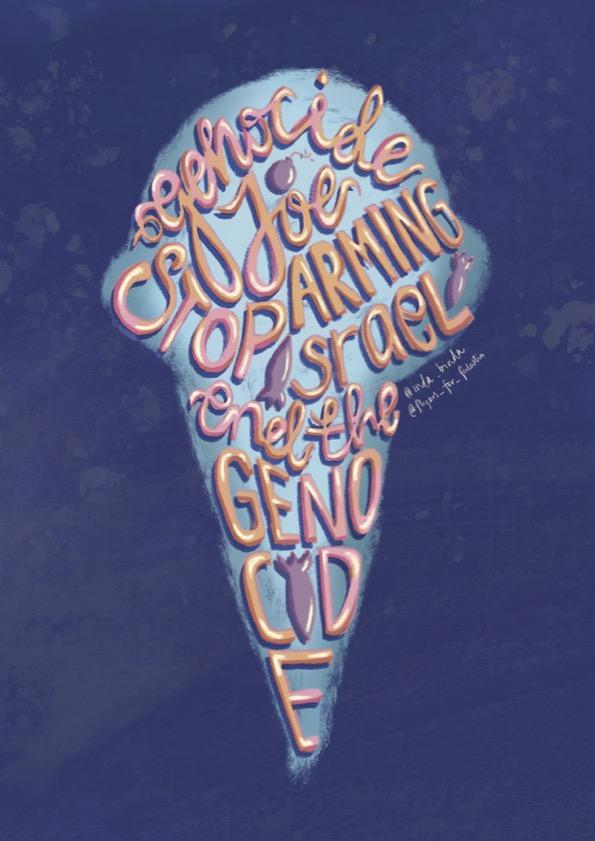 genocide
Joe
STOP ARMING
Israel
end the
GENO
CiD
E
@inda_binda
@flyers_for_falastin